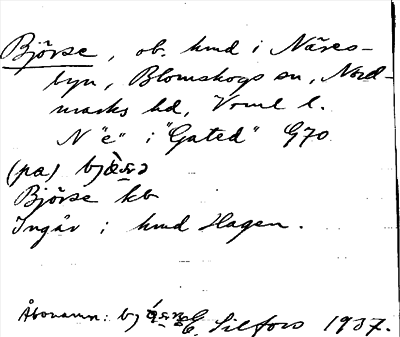 Björse, ob. hmd i Näres-
byn, Blomskogs sn, Nord-
marks hd, Vrml l.
N "e" i "Gated" G70
(pa)
Björse kb
Ingår i hmd Hagen.
Åbonamn: E. Silfors 1937.